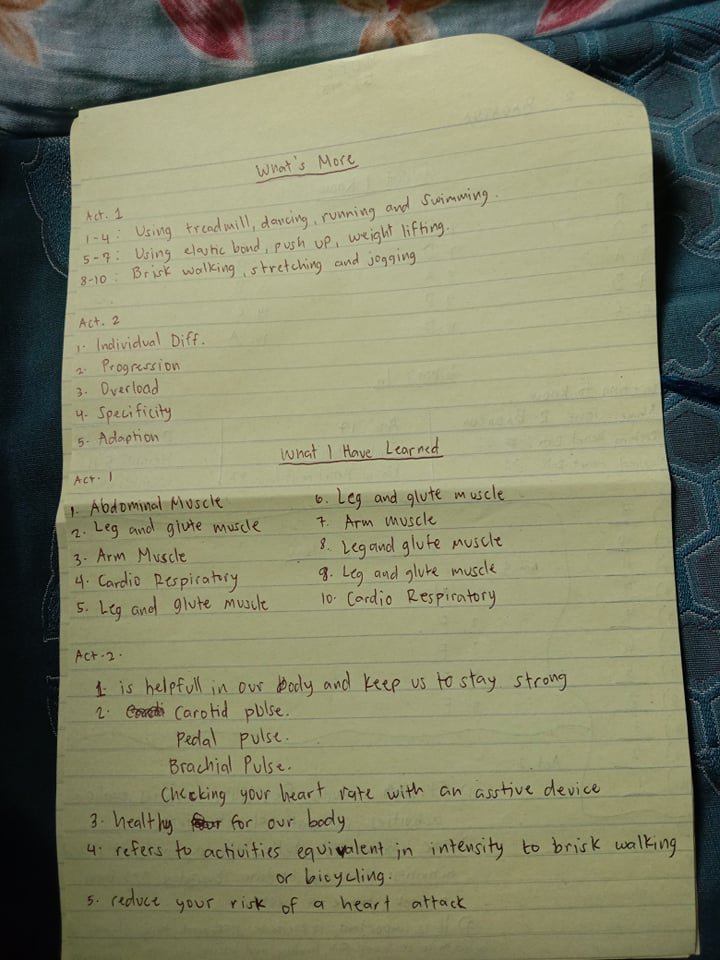 What's More
Act. 1
1-4: Using treadmill, dancing, running and swimming.
5-7: Using elastic band, push up, weight lifting.
8-10: Brisk walking, stretching and jogging
Act. 2
1. Individual Diff.
2. Progression
3. Overload
4. Specificity
5. Adaption
What I Have Learned
Act. 1
1. Abdominal Muscle
2. Leg and glute muscle
3. Arm Muscle
4. Cardio Respiratory
5. Leg and glute muscle
6. Leg and glute muscle
7. Arm muscle
8. Leg and glute muscle
9. Leg and glute muscle
10. Cardio Respiratory
Act-2.
1. is helpfull in our body and keep us to stay strong
2. Carotid pblse.
Pedal pulse.
Brachial Pulse.
Checking your heart rate with an asstive device
3. healthy for our body
4. refers to activities equivalent in intensity to brisk walking
or bicycling.
5. reduce your risk of a heart attack